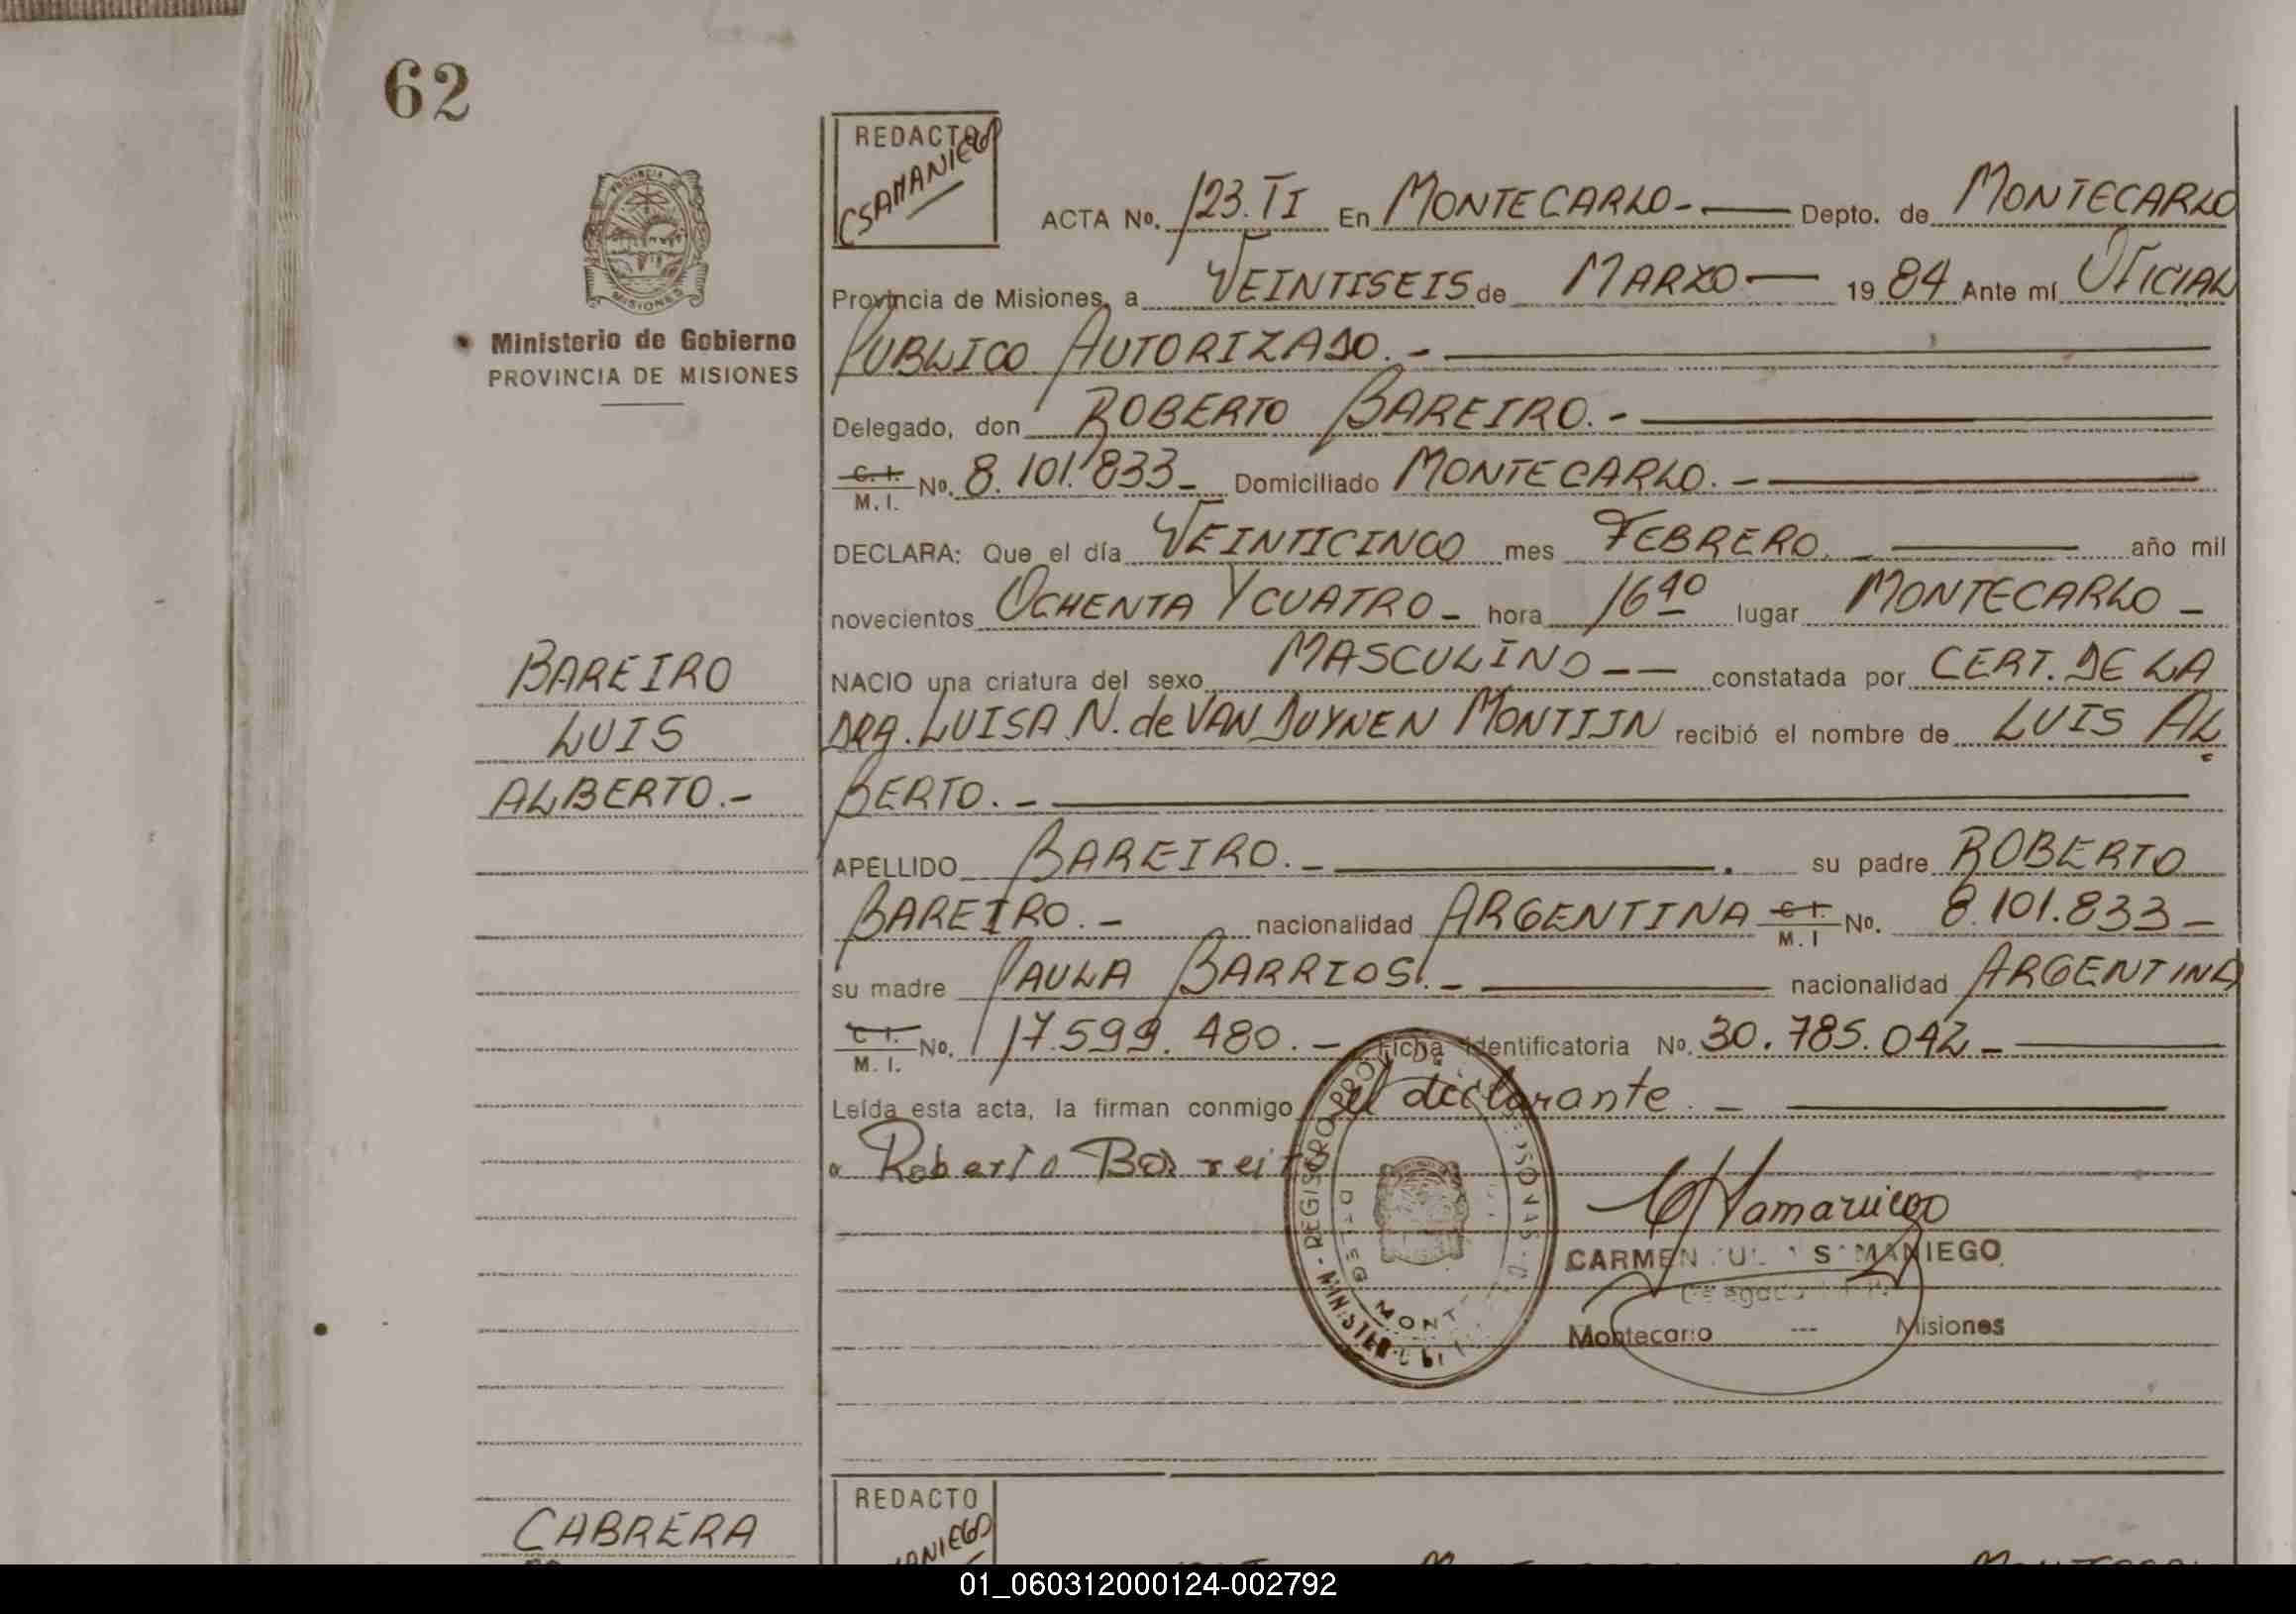 62
PROVINCIA DE
MISIONES
Ministerio de Gobierno
PROVINCIA DE MISIONES
BAREIRO
LUIS
ALBERTO.-
CABRERA
REDACTO
CSAMANIEGO
ACTA No. 123.TI En MONTECARLO.- Depto. de MONTECARLO
Provincia de Misiones, a VEINTISEIS de MARZO 19 84 Ante mí OFICIAL
PUBLICO AUTORIZADO.-
Delegado, don ROBERTO BAREIRO.-
C. I. / M. I. No. 8.101.833- Domiciliado MONTECARLO.-
DECLARA: Que el día VEINTICINCO mes FEBRERO. año mil
novecientos OCHENTA Y CUATRO- hora 16 40 lugar MONTECARLO-
NACIO una criatura del sexo MASCULINO-- constatada por CERT. DE LA
DRA. LUISA N. de VAN DUYNEN MONTIJN recibió el nombre de LUIS AL
BERTO.-
APELLIDO BAREIRO.- su padre ROBERTO
BAREIRO.- nacionalidad ARGENTINA C I. / M. I No. 8.101.833-
su madre PAULA BARRIOS.- nacionalidad ARGENTINA
C I. / M. I. No. 17.599.480.- Ficha Identificatoria No. 30.785.042-
Leída esta acta, la firman conmigo el declarante.-
Roberto Barreiro
CSamaniego
CARMEN SAMANIEGO
Delegado
Montecarlo --- Misiones
REGISTRO PROV. DE PERSONAS
MINISTER
DELEG
MONT
REDACTO
01_060312000124-002792